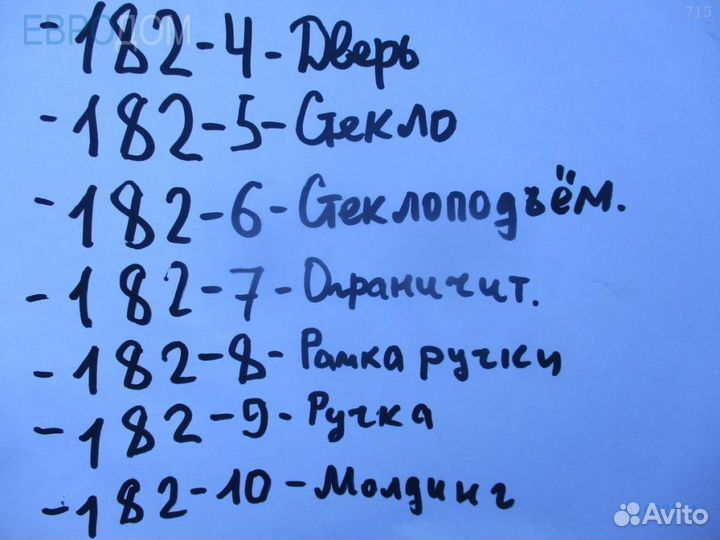 ЕВРОДОМ
715
-182-4-Дверь
-182-5-Стекло
-182-6-Стеклоподъём.
-182-7-Ограничит.
-182-8-Рамка ручки
-182-9-Ручка
-182-10-Молдинг
Avito